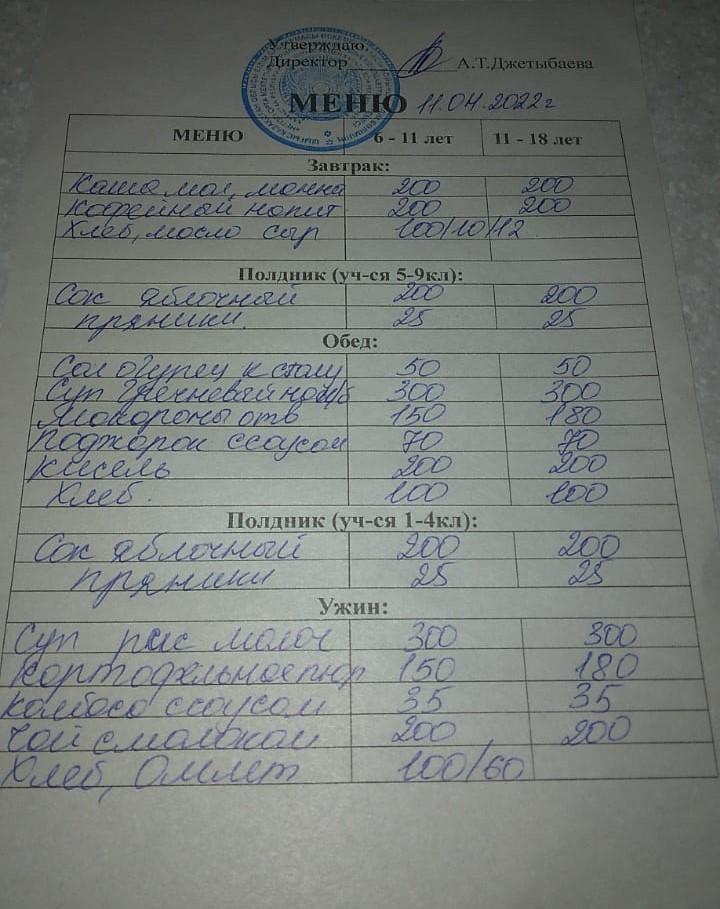 Утверждаю:
Директор А.Т.Джетыбаева
МЕНЮ 11.04.2022г
МЕНЮ 6 - 11 лет 11 - 18 лет
Завтрак:
Каша мол, манна 200 200
Кофейный напит 200 200
Хлеб, масло сыр 100/10/12
Полдник (уч-ся 5-9кл):
Сок яблочный 200 200
пряники. 25 25
Обед:
Сол огурец к столу 50 50
Суп гречневый на м/б 300 300
Макароны отв 150 180
Поджарка с соусом 70 70
Кисель 200 200
Хлеб. 100 100
Полдник (уч-ся 1-4кл):
Сок яблочный 200 200
пряники 25 25
Ужин:
Суп рис молоч 300 300
Картофельное пюр 150 180
Колбаса с соусом 35 35
Чай с молоком 200 200
Хлеб, Омлет 100/60